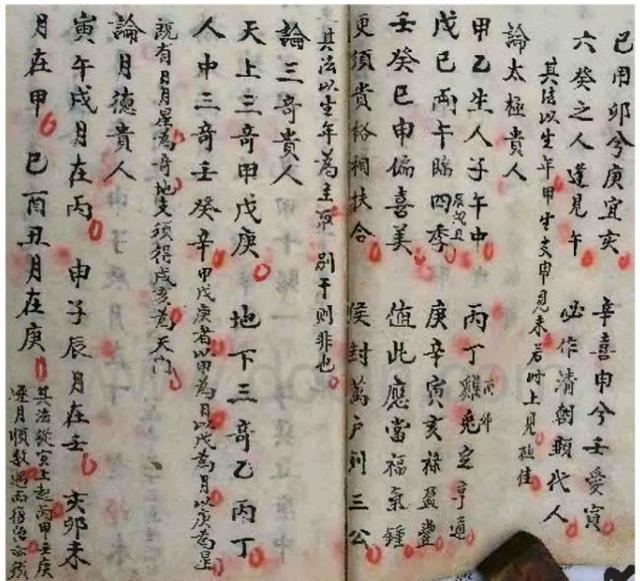 己用卯兮庚宜亥 辛喜申兮壬愛寅
六癸之人逢見午 必作清朝顯代人
其法以生年甲生支申見未若時上見極佳
論太極貴人
甲乙生人子午中 丙丁雞兔定亨通
酉卯
戊己兩午臨四季 庚辛寅亥祿盈豐
辰戌丑
壬癸巳申偏喜美 值此應當福氣鍾
更須貴格相扶合 侯封萬戶列三公
其法以生年為主 別干則非也
論三奇貴人
天上三奇甲戊庚 地下三奇乙丙丁
人中三奇壬癸辛 甲戊庚者以甲為日以戊為月以庚為星
既有日月星為奇地支須得戌亥為天門
論月德貴人
寅午戌月在丙 申子辰月在壬 亥卯未
月在甲 巳酉丑月在庚 其法從寅上起丙甲壬庚
逐月順數過而復